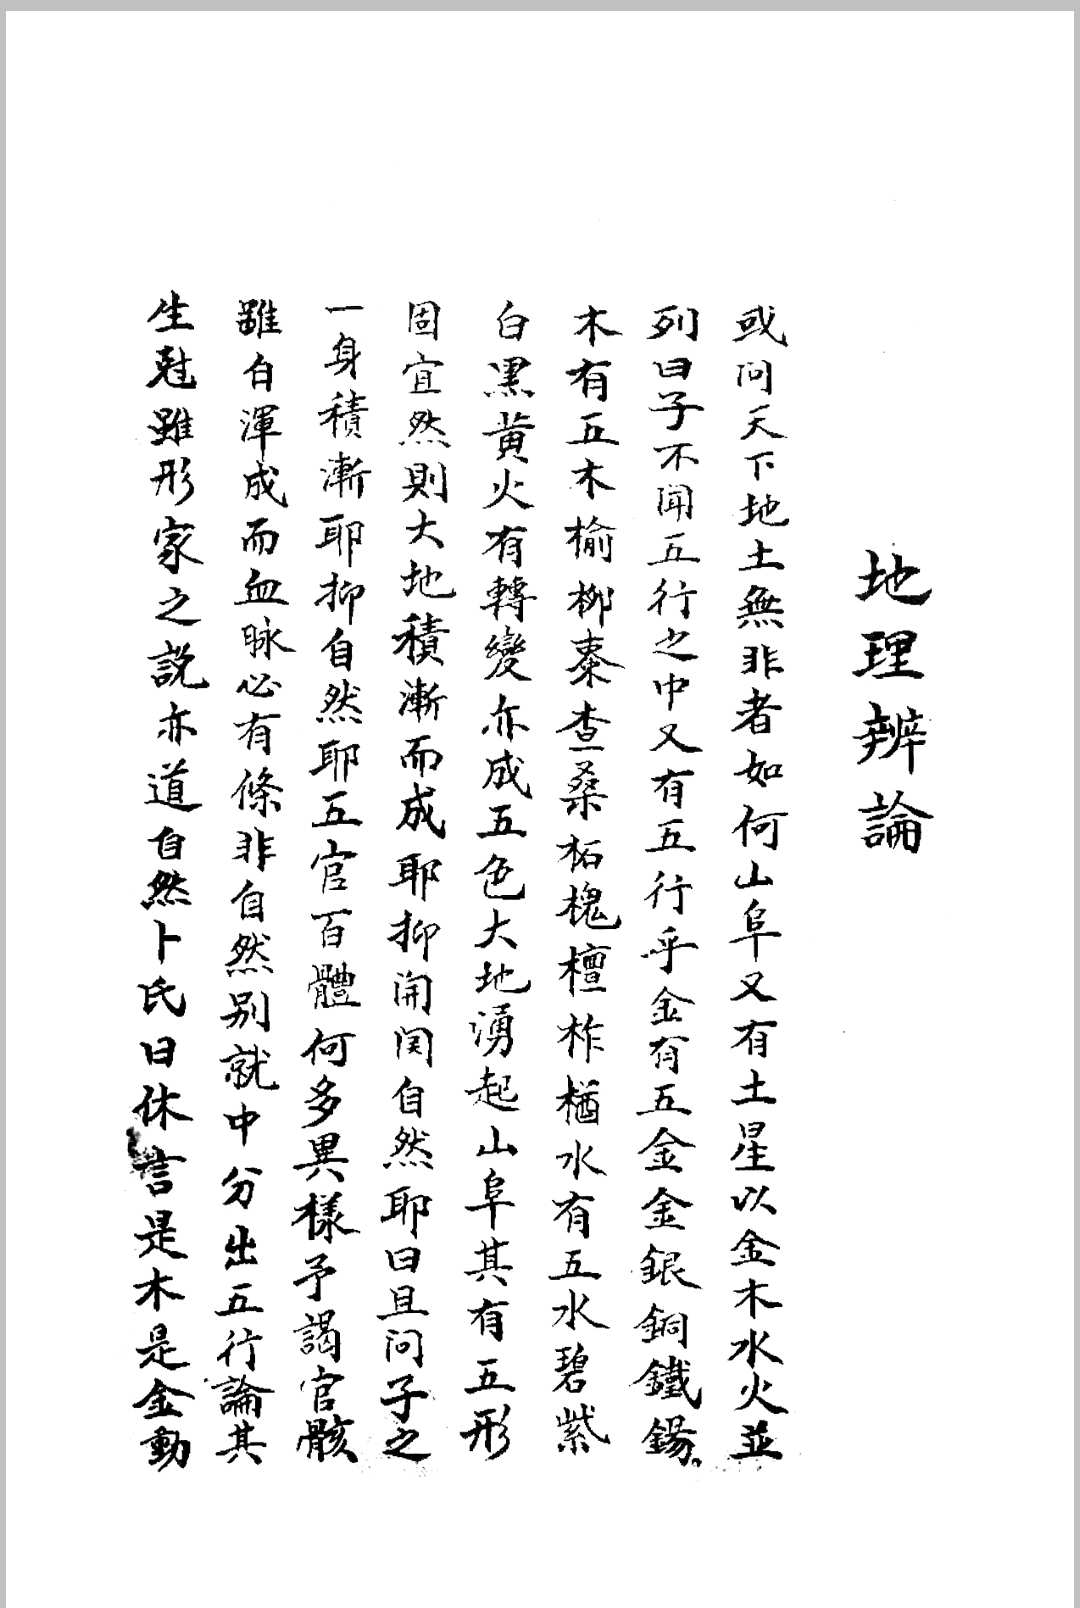 地理辨論
或问天下地土無非者如何山阜又有土星以金木水火並
列曰子不闻五行之中又有五行乎金有五金金銀銅鐵錫
木有五木榆柳棗查桑柘槐檀柞楢水有五水碧紫
白黑黄火有轉變亦成五色大地湧起山阜其有五形
固宜然則大地積漸而成耶抑闹闗自然耶曰且问子之
一身積漸耶抑自然耶五官百體何多異樣予謁官骸
雖自渾成而血脉必有條非自然别就中分出五行論其
生尅雖形家之説亦道自然卜氏曰休言是木是金動